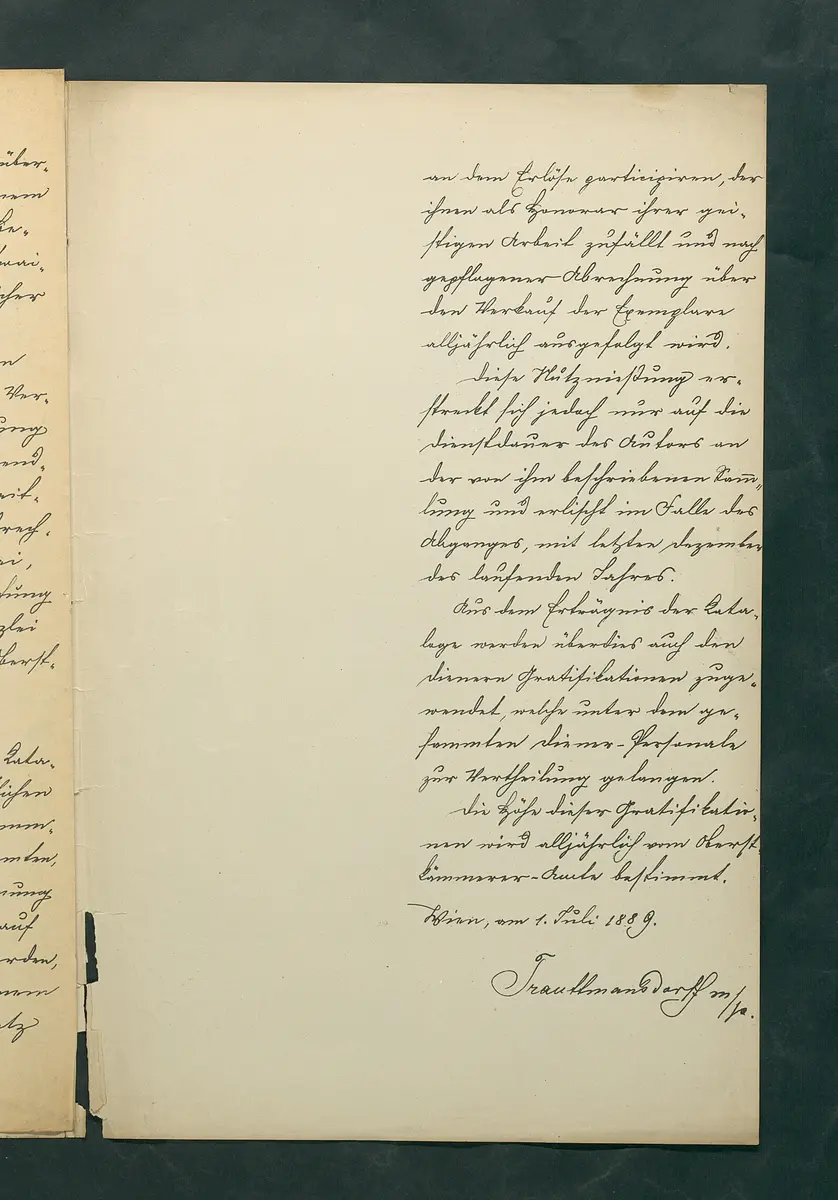 über-
nem
Be-
wai-
cher
n
Ver-
ung
end-
eit-
rech-
ei,
fung
zlei
berst-
Kata-
lichen
mm-
mten,
nung
auf
rden,
nem
atz
an dem Erlöse participiren, der
ihnen als Honorar ihrer gei-
stigen Arbeit zufällt und nach
gepflogener Abrechnung über
den Verkauf der Exemplare
alljährlich ausgefolgt wird.
Diese Nutznießung er-
streckt sich jedoch nur auf die
Dienstdauer des Autors an
der von ihm beschriebenen Sam̅-
lung und erlischt im Falle des
Abganges, mit letzten Dezember
des laufenden Jahres.
Aus dem Erträgnis der Kata-
loge werden überdies auch den
Dienern Gratifikationen zuge-
wendet, welche unter dem ge-
sammten Diener-Personale
zur Vertheilung gelangen.
Die Höhe dieser Gratifikatio-
nen wird alljährlich vom Oberst-
kämmerer-Amte bestimmt.
Wien, am 1. Juli 1889.
Trauttmansdorff m/p.